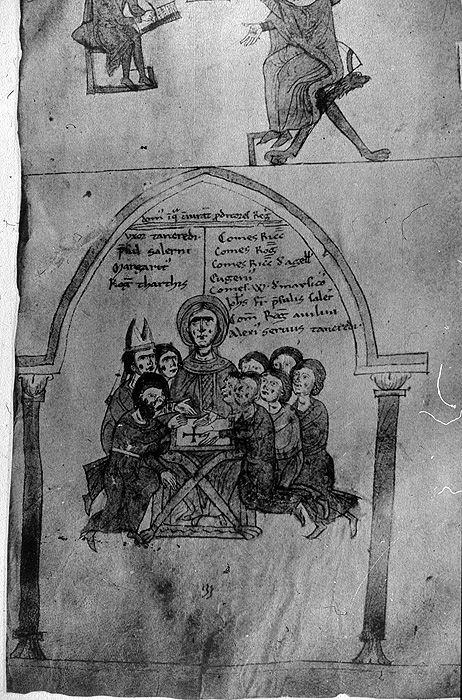 Dom' i q̃ iurãt pditores Reg̃
Vxor tancredi.
psul salerni
Margarit
Rog̃ tharthis
Comes Ricc̃
Comes Rog̃
Comes Ricc̃ d'agell
Eugeni'
Comes .W. d'marsico
Joħs fr̃ psulis saler̃
Com̃ Rog̃ auilini
Alexi' seruus tancredi.